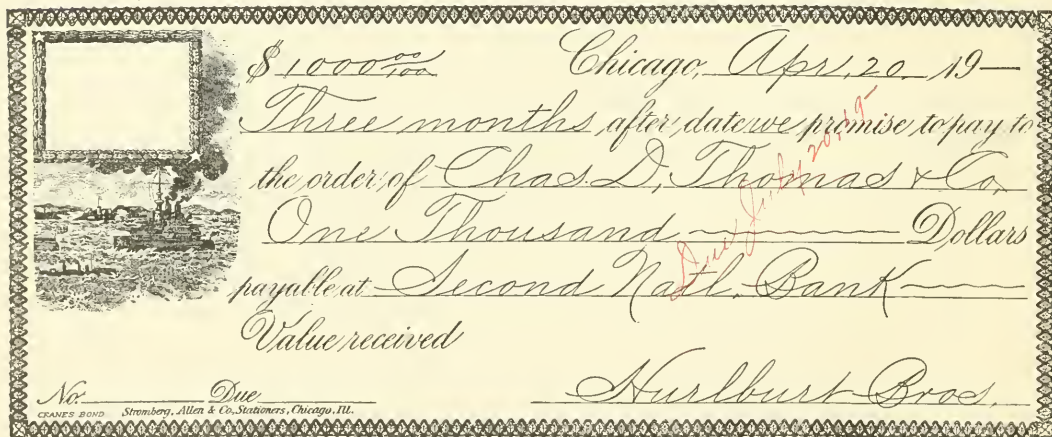 $1000 00/100 Chicago, Apr. 20. 19—
Three months after date we promise to pay to
the order of Chas. D. Thomas & Co.
One Thousand ——— Dollars
payable at Second Natl. Bank ——
Value received
Hurlburt Bros.
No. Due
CRANES BOND Stromberg, Allen & Co., Stationers, Chicago, Ill.
Due July 20, 19-